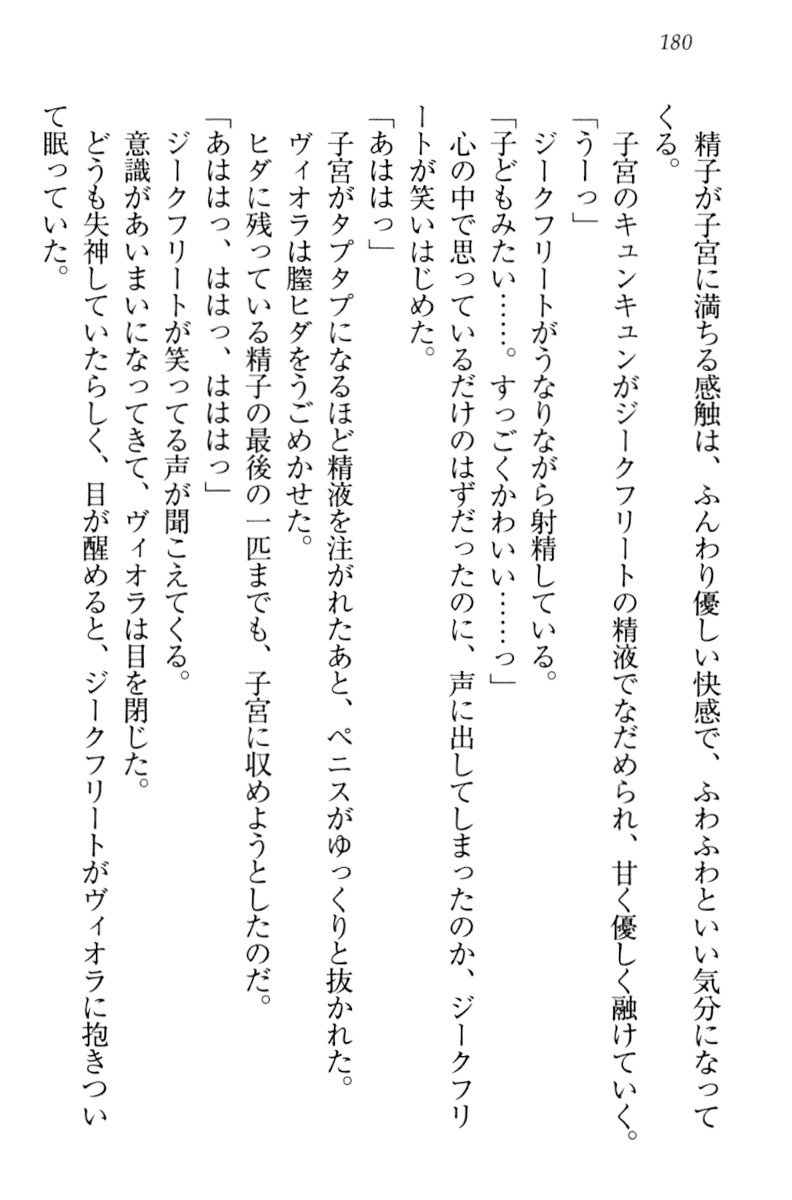 180
精子が子宮に満ちる感触は、ふんわり優しい快感で、ふわふわといい気分になって
くる。
子宮のキュンキュンがジークフリートの精液でなだめられ、甘く優しく融けていく。
「うーっ」
ジークフリートがうなりながら射精している。
「子どもみたい……。すっごくかわいい……っ」
心の中で思っているだけのはずだったのに、声に出してしまったのか、ジークフリ
ートが笑いはじめた。
「あははっ」
子宮がタプタプになるほど精液を注がれたあと、ペニスがゆっくりと抜かれた。
ヴィオラは膣ヒダをうごめかせた。
ヒダに残っている精子の最後の一匹までも、子宮に収めようとしたのだ。
「あははっ、ははっ、はははっ」
ジークフリートが笑ってる声が聞こえてくる。
意識があいまいになってきて、ヴィオラは目を閉じた。
どうも失神していたらしく、目が醒めると、ジークフリートがヴィオラに抱きつい
て眠っていた。